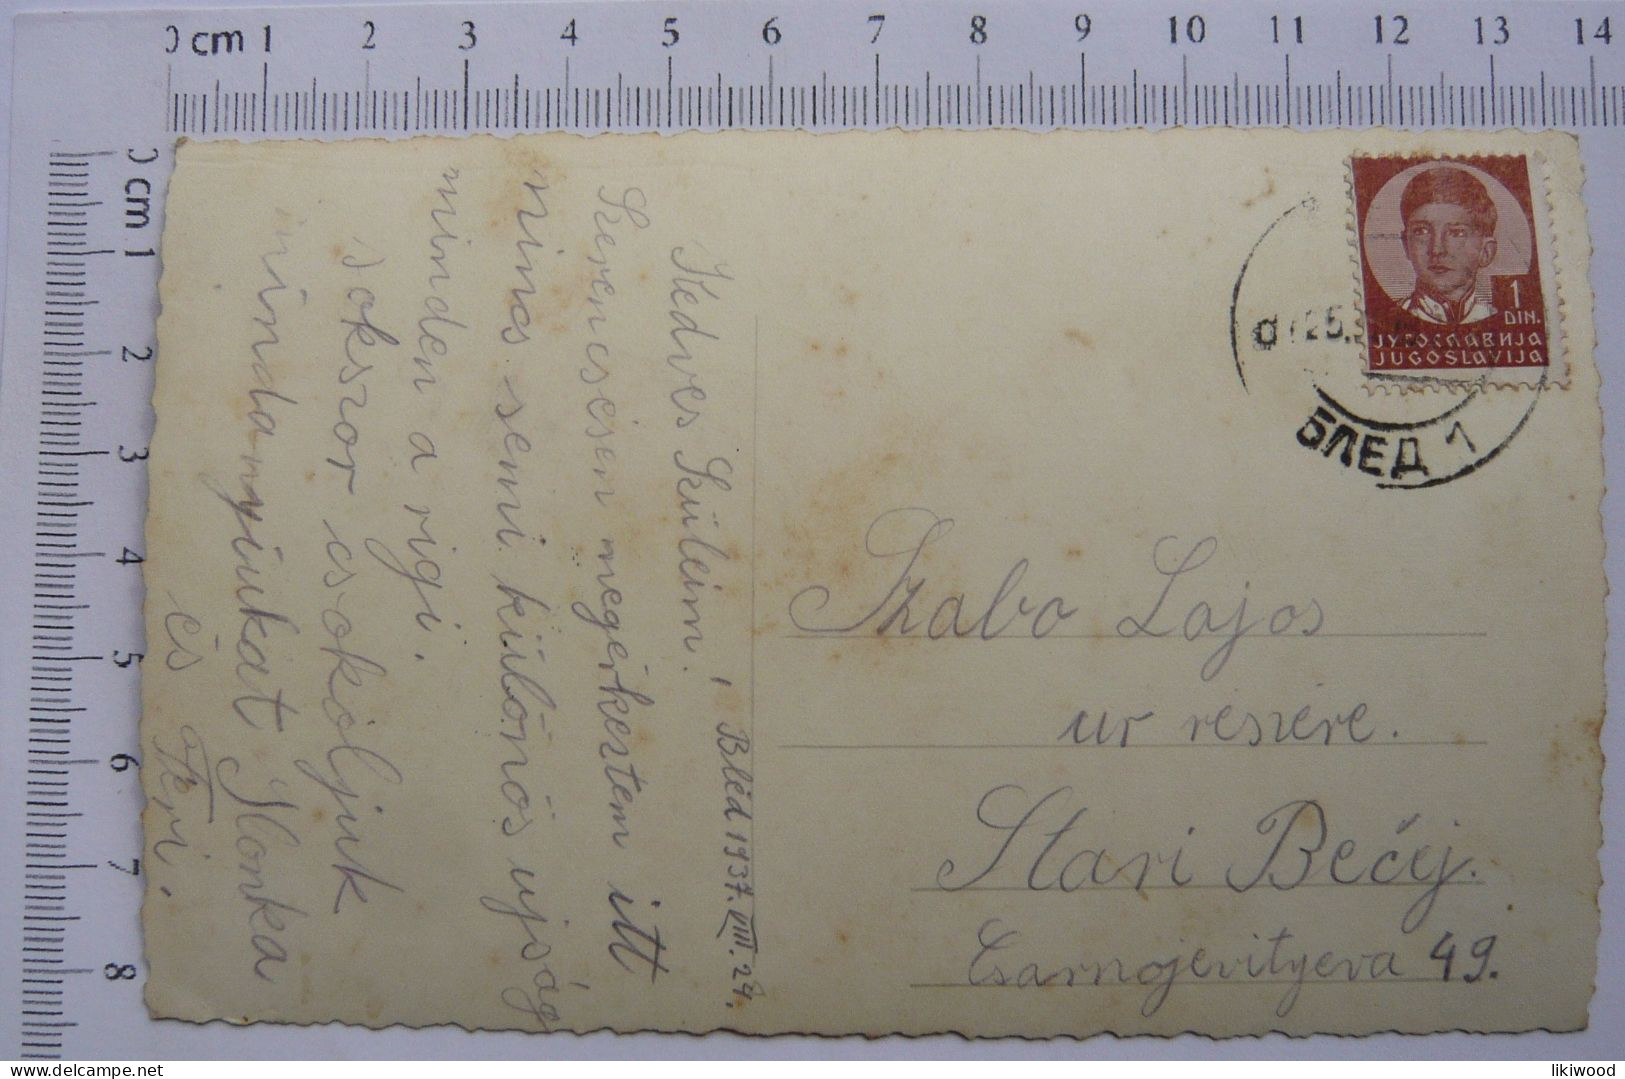 0 cm 1 2 3 4 5 6 7 8 9 10 11 12 13 14
0 cm 1 2 3 4 5 6 7 8
Bléd 1937. VIII. 24.
Kedves Szüleim!
Szerencsésen megérkeztem itt
nincs semmi különös ujság
minden a rigi.
Sokszor csokoljuk
mindanyiukat Ilonka
és Feri.
1
DIN.
ЈУГОСЛАВИЈА
JUGOSLAVIJA
25.
БЛЕД 1
Szabo Lajos
ur reszére.
Stari Bečej.
Csarnojevityeva 49.
delcampe.net
likiwood